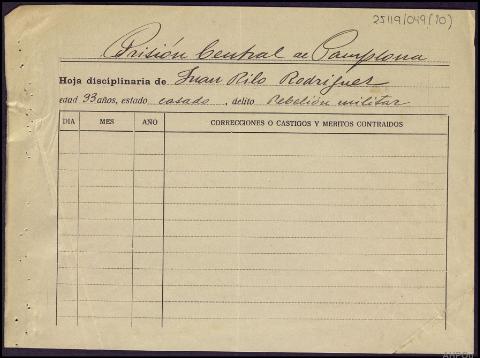 25119/049(10)
Prisión Central de Pamplona
Hoja disciplinaria de Juan Rilo Rodriguez
edad 33 años, estado casado, delito Rebelión militar
DIA MES AÑO CORRECCIONES O CASTIGOS Y MERITOS CONTRAIDOS